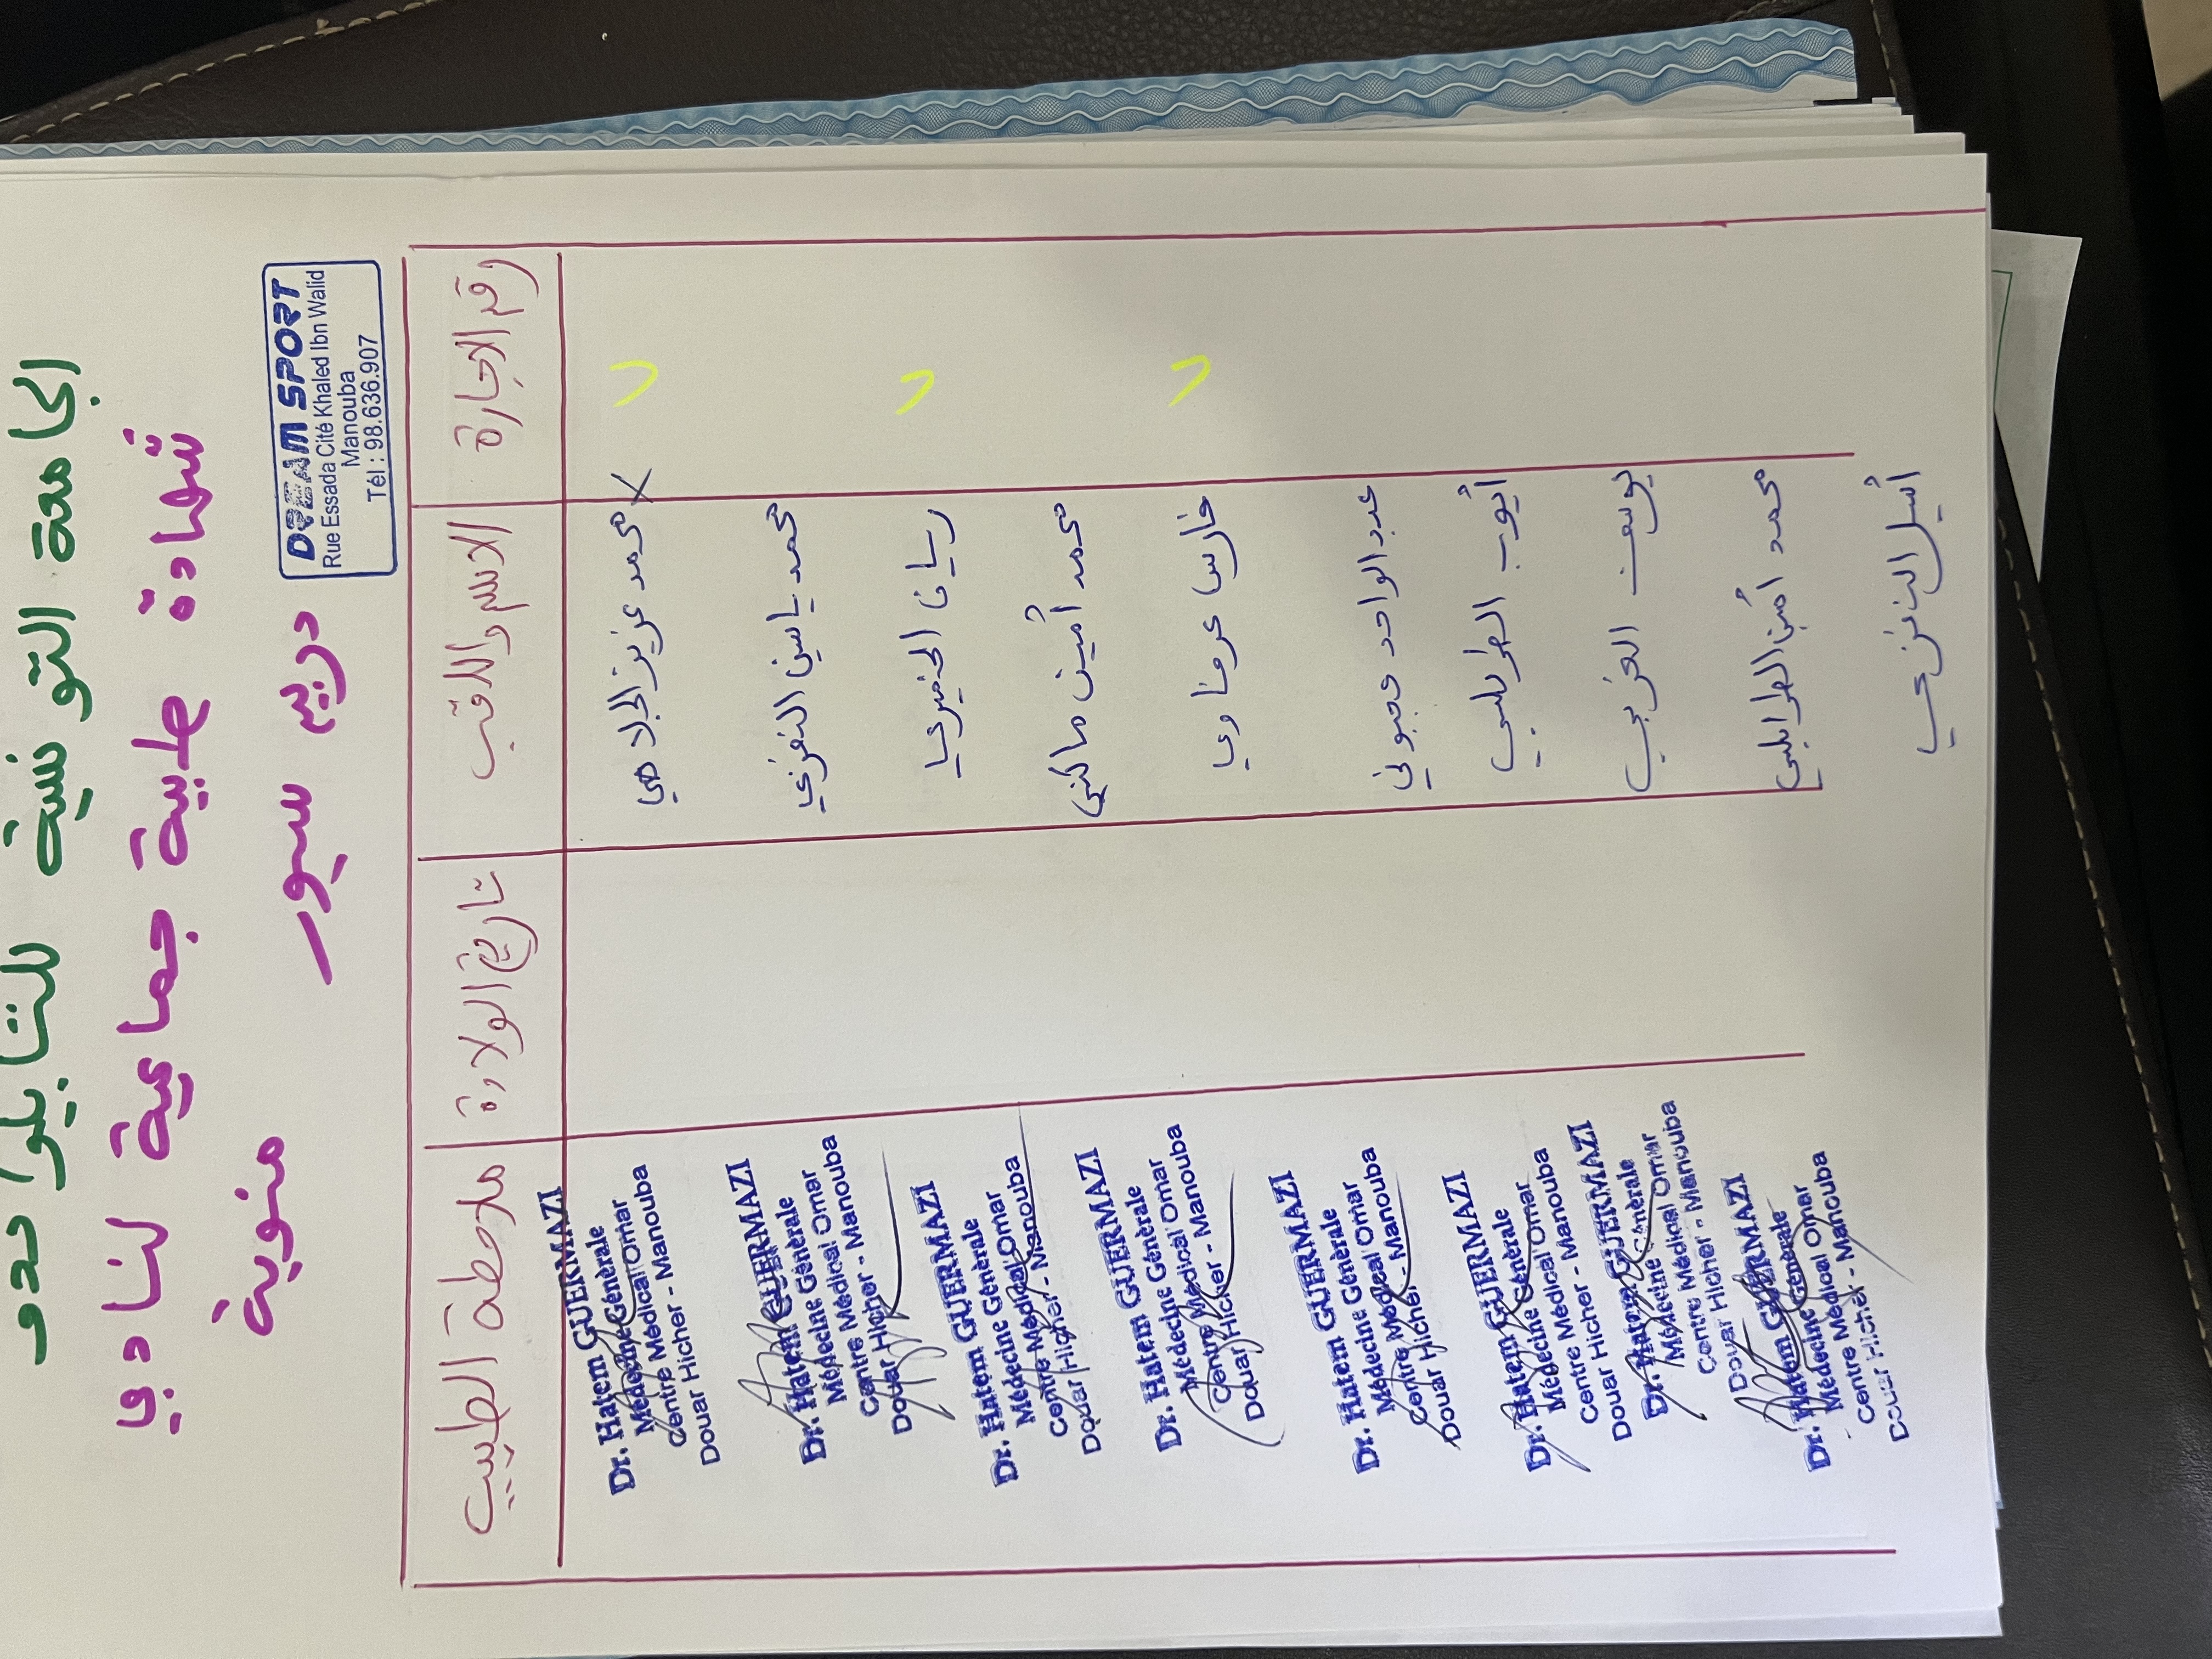 الجامعة التونسية للتايكواندو
شهادة طبية جماعية لنادي
دريم سبور منوبة
DREAM SPORT
Rue Essada Cité Khaled Ibn Walid
Manouba
Tél : 98.636.907
رقم الاجازة الاسم واللقب تاريخ الولادة ملاحظة الطبيب
محمد عزيز الجلاصي
محمد ياسين النفزي
ريان الخميري
محمد أمين مالكي
فارس عرفاوي
عبد الواحد عجبوني
أيوب الطرابلسي
يوسف الغربي
محمد أمين الطرابلسي
أسيل
Dr. Hatem GUERMAZI
Médecine Générale
Centre Médical Omar
Douar Hicher - Manouba
Dr. Hatem GUERMAZI
Médecine Générale
Centre Médical Omar
Douar Hicher - Manouba
Dr. Hatem GUERMAZI
Médecine Générale
Centre Médical Omar
Douar Hicher - Manouba
Dr. Hatem GUERMAZI
Médecine Générale
Centre Médical Omar
Douar Hicher - Manouba
Dr. Hatem GUERMAZI
Médecine Générale
Centre Médical Omar
Douar Hicher - Manouba
Dr. Hatem GUERMAZI
Médecine Générale
Centre Médical Omar
Douar Hicher - Manouba
Dr. Hatem GUERMAZI
Médecine Générale
Centre Médical Omar
Douar Hicher - Manouba
Dr. Hatem GUERMAZI
Médecine Générale
Centre Médical Omar
Douar Hicher - Manouba